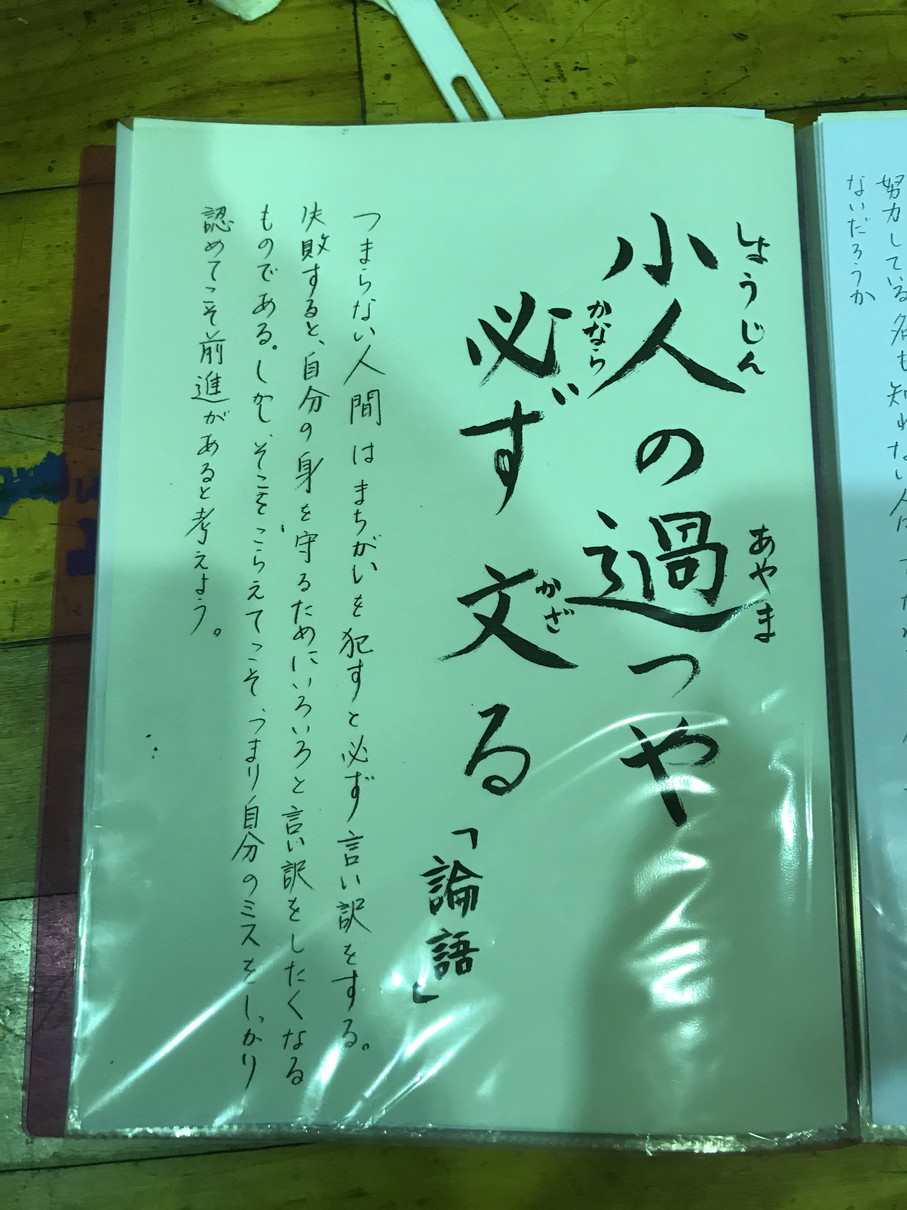 小人の過つや
しょうじん
あやま
必ず文る「論語」
かなら
かざ
つまらない人間はまちがいを犯すと必ず言い訳をする。
失敗すると、自分の身を守るためにいろいろと言い訳をしたくなる
ものである。しかし、そこをこらえてこそ、つまり自分のミスをしっかり
認めてこそ前進があると考えよう。
努力している名も知れない人
ないだろうか